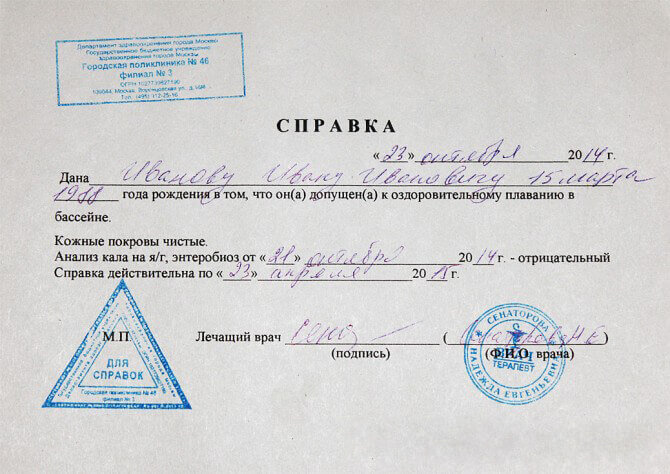 Департамент здравоохранения города Москвы
Государственное бюджетное учреждение
здравоохранения города Москвы
Городская поликлиника № 46
филиал № 3
109044, Москва, Воронцовская ул., д.
Тел. (495)
СПРАВКА
«23» октября 2014 г.
Дана Иванову Ивану Ивановичу 15 марта
1988 года рождения в том, что он(а) допущен(а) к оздоровительному плаванию в
бассейне.
Кожные покровы чистые.
Анализ кала на я/г, энтеробиоз от «21» октября 2014 г. - отрицательный
Справка действительна по «23» апреля 2015 г.
М.П. Лечащий врач ( Н Е )
(подпись) (Ф.И.О. врача)
ДЛЯ
СПРАВОК
Городская поликлиника № 46
филиал № 3
СЕНАТОРОВА
НАДЕЖДА ЕВГЕНЬЕВНА
ВРАЧ
ТЕРАПЕВТ